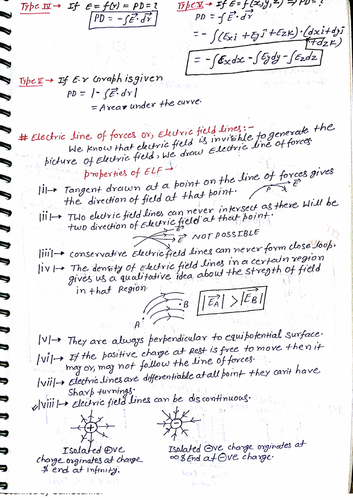 Type IV → If E = f(r) ⇒ PD = ?
PD = -∫E⃗·dr⃗
Type V → If E = f(x,y,z) ⇒ PD = ?
PD = -∫E⃗·dr⃗
= -∫(Exi + Eyj + Ezk)·(dxi+dyj
+dzk)
= -∫Exdx -∫Eydy -∫Ezdz
If E-r Graph is given
PD = |-∫E⃗·dr|
= Area under the curve.
# Electric line of forces or, Electric field lines:-
We know that electric field is invisible to generate the
picture of electric field, we draw Electric line of forces
properties of ELF →
|i|→ Tangent drawn at a point on the line of forces gives
the direction of field at that point.
P E⃗
|ii|→ Two electric field lines can never intersect as there will be
two direction of Electric field at that point.
E⃗
E⃗ NOT POSSIBLE
|iii|→ conservative Electric field lines can never form close loop.
|iv|→ The density of electric field lines in a certain region
gives us a qualitative idea about the strength of field
in that Region.
A B |E⃗A| > |E⃗B|
|v|→ They are always perpendicular to equipotential surface.
|vi|→ If the positive charge at Rest is free to move then it
may or, may not follow the line of forces.
|vii|→ Electric lines are differentiable at all point they can't have
sharp turnings.
|viii|→ Electric field lines can be discontinuous.
Isolated ⊕ve
charge orginates at charge
& end at infinity.
Isolated ⊖ve charge orginates at
∞ & End at ⊖ve charge.